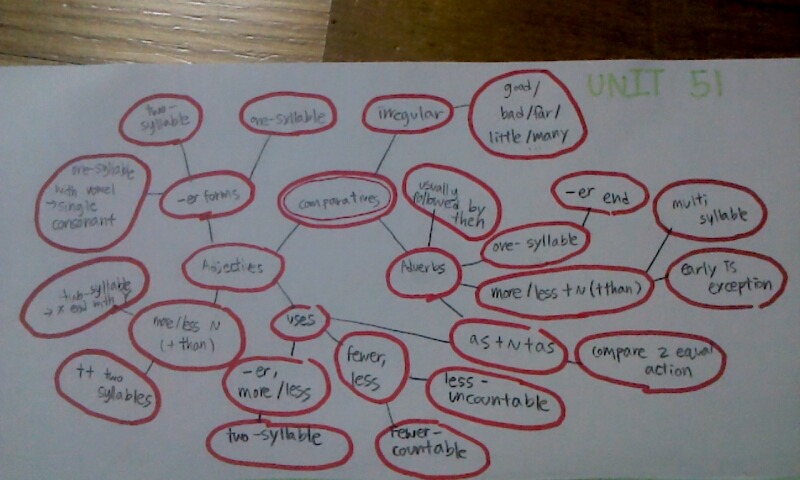 UNIT 51
two-
syllable
one-syllable
irregular
good/
bad/far/
little/many
one-syllable
with vowel
→single
consonant
-er forms
comparatives
usually
followed by
then
-er end
multi
syllable
one-syllable
Adjectives
Adverbs
more/less+N(+than)
early is
exception
two-syllable
→ x end with y
more/less N
(+than)
uses
as+N+as
compare 2 equal
action
++ two
syllables
-er,
more/less
fewer,
less
less-
uncountable
two-syllable
fewer-
countable